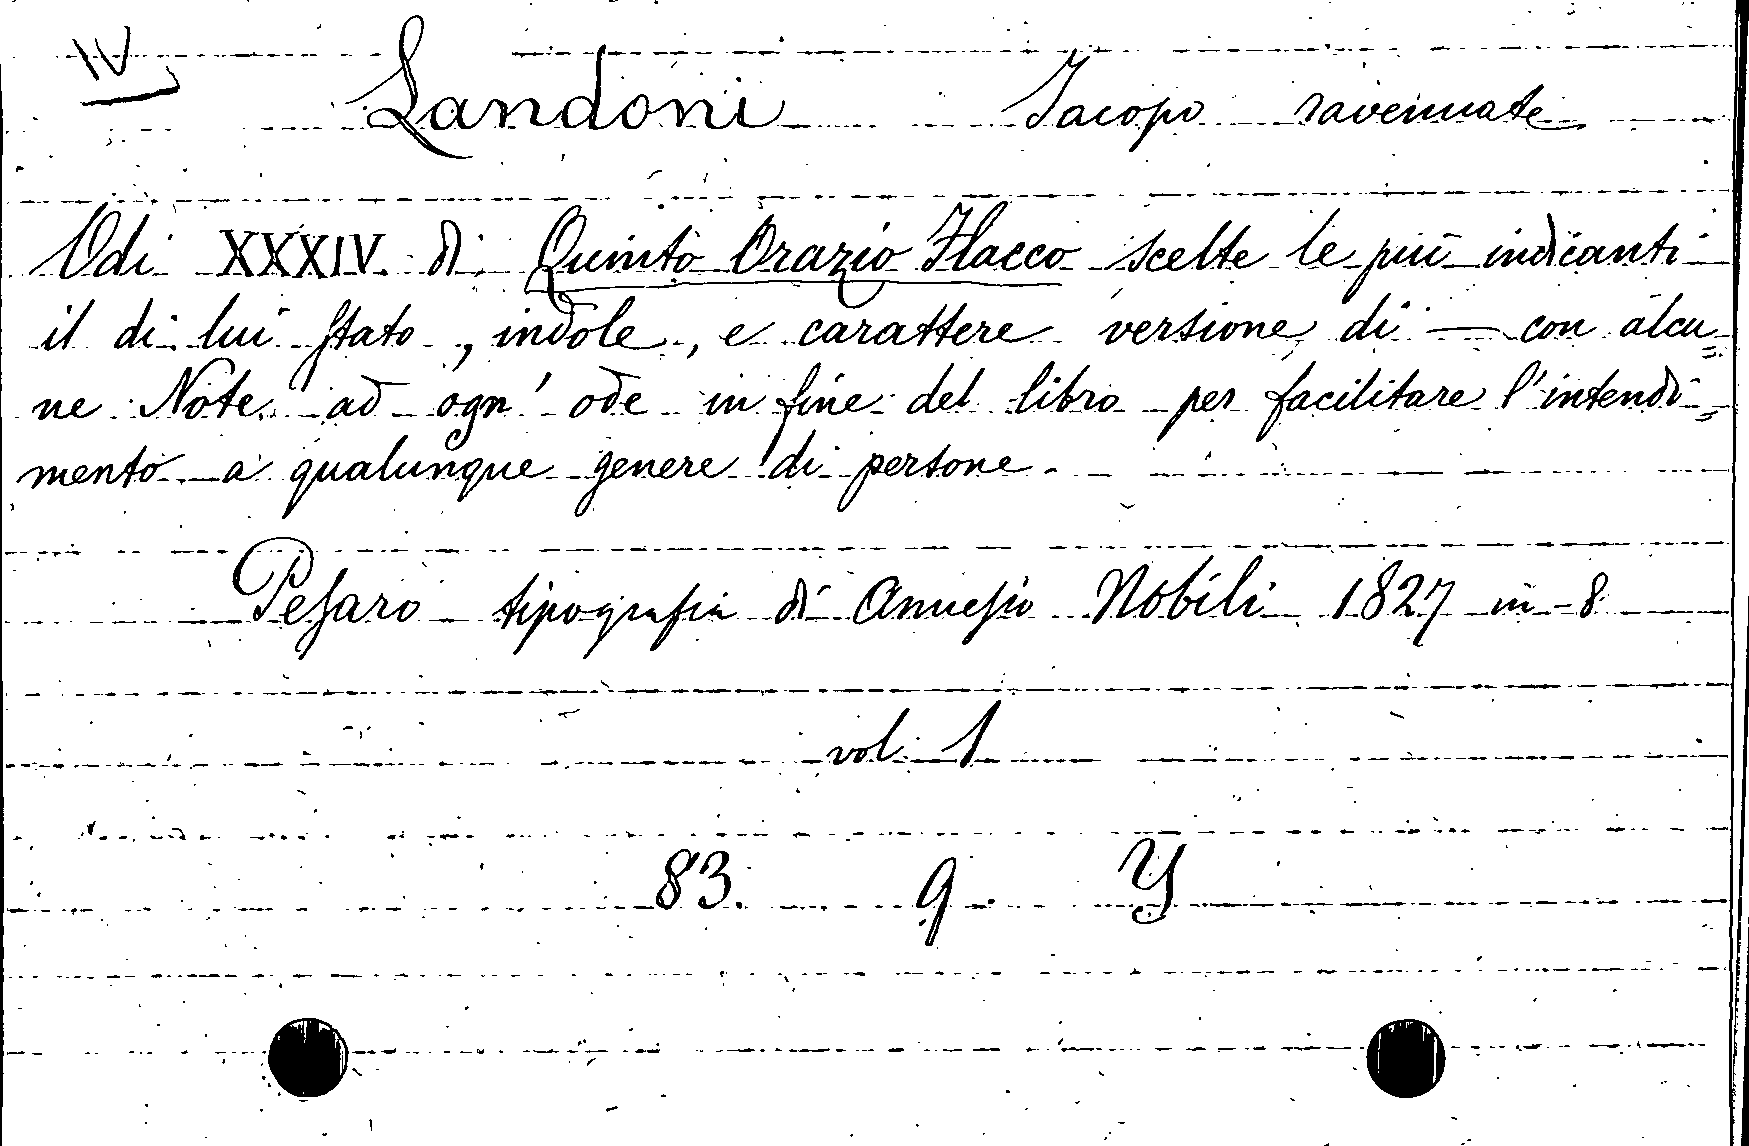 IV
Landoni Jacopo ravennate
Odi XXXIV. di Quinto Orazio Flacco scelte le più indicanti
il di lui stato, indole, e carattere versione di — con alcu=
ne Note ad ogn' ode in fine del libro per facilitare l'intendi=
mento a qualunque genere di persone.
Pesaro tipografia di Annesio Nobili 1827 in-8
vol. 1
83. 9. Y